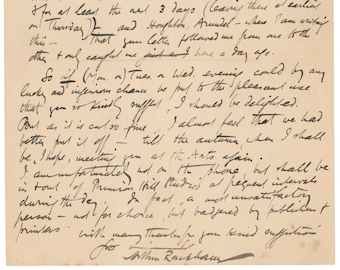 for at least the next 3 days (leaving there at earliest
on Thursday) — and Houghton, Arundel — where I am writing
this — that your letter followed me from one to the
other & only caught me here a day ago.
So if (Mon. or) Tues. or Wed. evening could by any
lucky and ingenious chance be put to the pleasant use
that you so kindly suggest, I should be delighted.
But as it is cut so fine I almost feel that we had
better put it off — till the autumn, when I shall
be, I hope, meeting you at the Arts again.
I am unfortunately not on the phone but shall be
in & out of Primrose Hill Studios at frequent intervals
during the day. In fact, a most unsatisfactory
person — not for choice, but badgered by publishers &
printers. With many thanks for your kind suggestion
Arthur Rackham